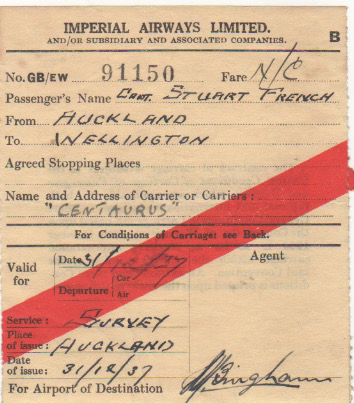 IMPERIAL AIRWAYS LIMITED.
AND/OR SUBSIDIARY AND ASSOCIATED COMPANIES.
B
No. GB/EW 91150 Fare N/C
Passenger's Name Capt. STUART FRENCH
From AUCKLAND
To WELLINGTON
Agreed Stopping Places
Name and Address of Carrier or Carriers:
"CENTAURUS"
For Conditions of Carriage: see Back.
Valid for
Date 31/12/37
Departure Car Air
Agent
Service: SURVEY
Place of issue: AUCKLAND
Date of issue: 31/12/37
For Airport of Destination